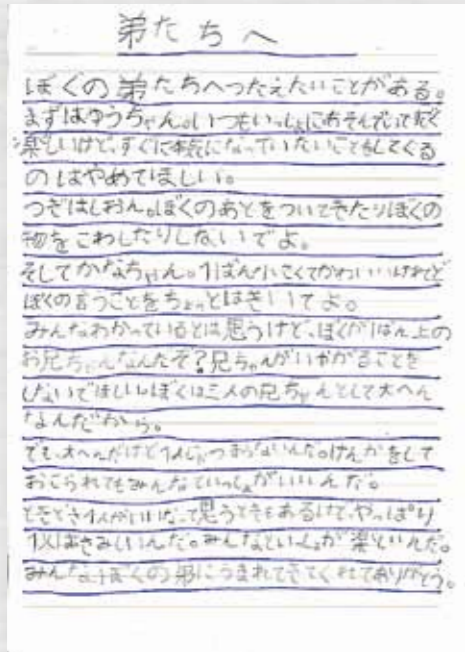 弟たちへ
ぼくの弟たちへつたえたいことがある。
まずはゆうちゃん。いつもいっしょにあそんでいて
楽しいけど、すぐに本気になっていたいこともしてくる
のはやめてほしい。
つぎはしおん。ぼくのあとをついてきたりぼくの
物をこわしたりしないでよ。
そしてかなちゃん。1ばん小さくてかわいいけれど
ぼくの言うことをちょっとはきいてよ。
みんなわかっているとは思うけど、ぼくが1ばん上の
お兄ちゃんなんだぞ?兄ちゃんがいやがることを
しないでほしいしぼくは三人の兄ちゃんとして大へん
なんだから。
でも、大へんだけど1人じゃつまらないんだ。けんかをして
おこられてもみんなといっしょがいいんだ。
ときどき1人がいいなって思うときもあるけど、やっぱり
1人はさみしいんだ。みんなといっしょが楽しいんだ。
みんな、ぼくの弟にうまれてきてくれてありがとう。